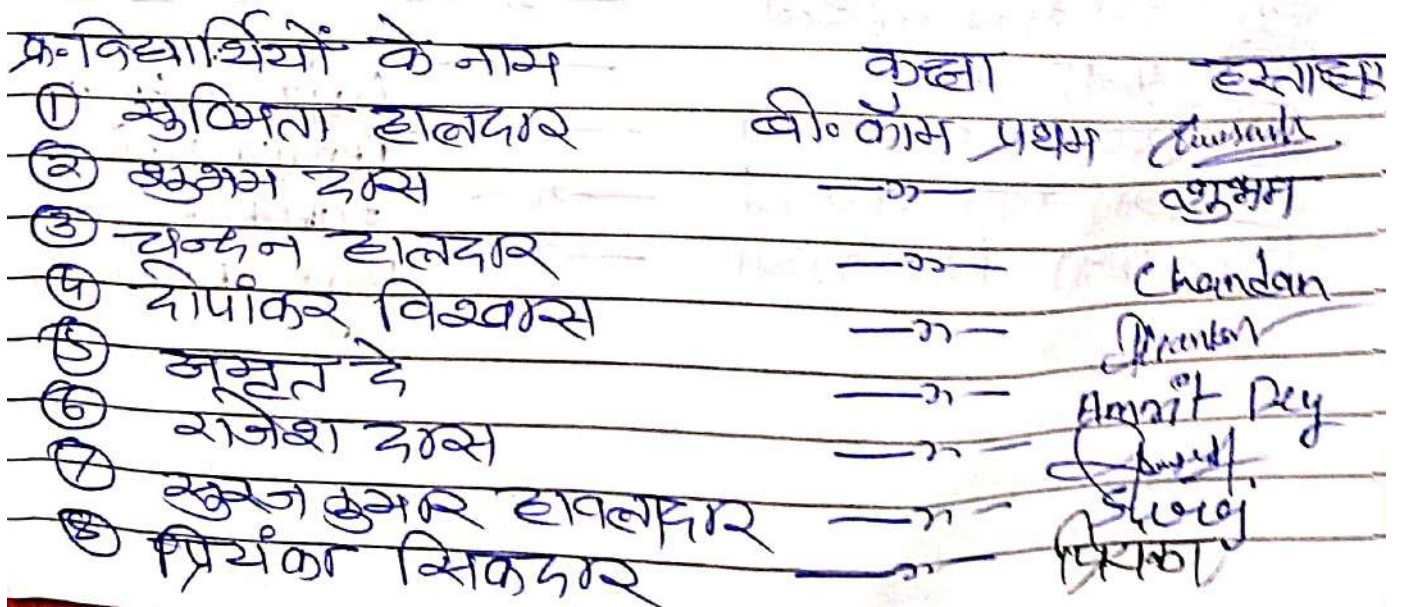 क्र. विद्यार्थियों के नाम कक्षा हस्ताक्षर
① सुष्मिता हालदार बी. कॉम प्रथम
② शुभम दास —״— शुभम
③ चन्दन हालदार —״— Chandan
④ दीपांकर विश्वास —״—
⑤ अमृत दे —״— Amrit Dey
⑥ राजेश दास —״—
⑦ सुरज कुमार हावलादार —״— Suraj
⑧ प्रियंका सिकदार —״— प्रियंका